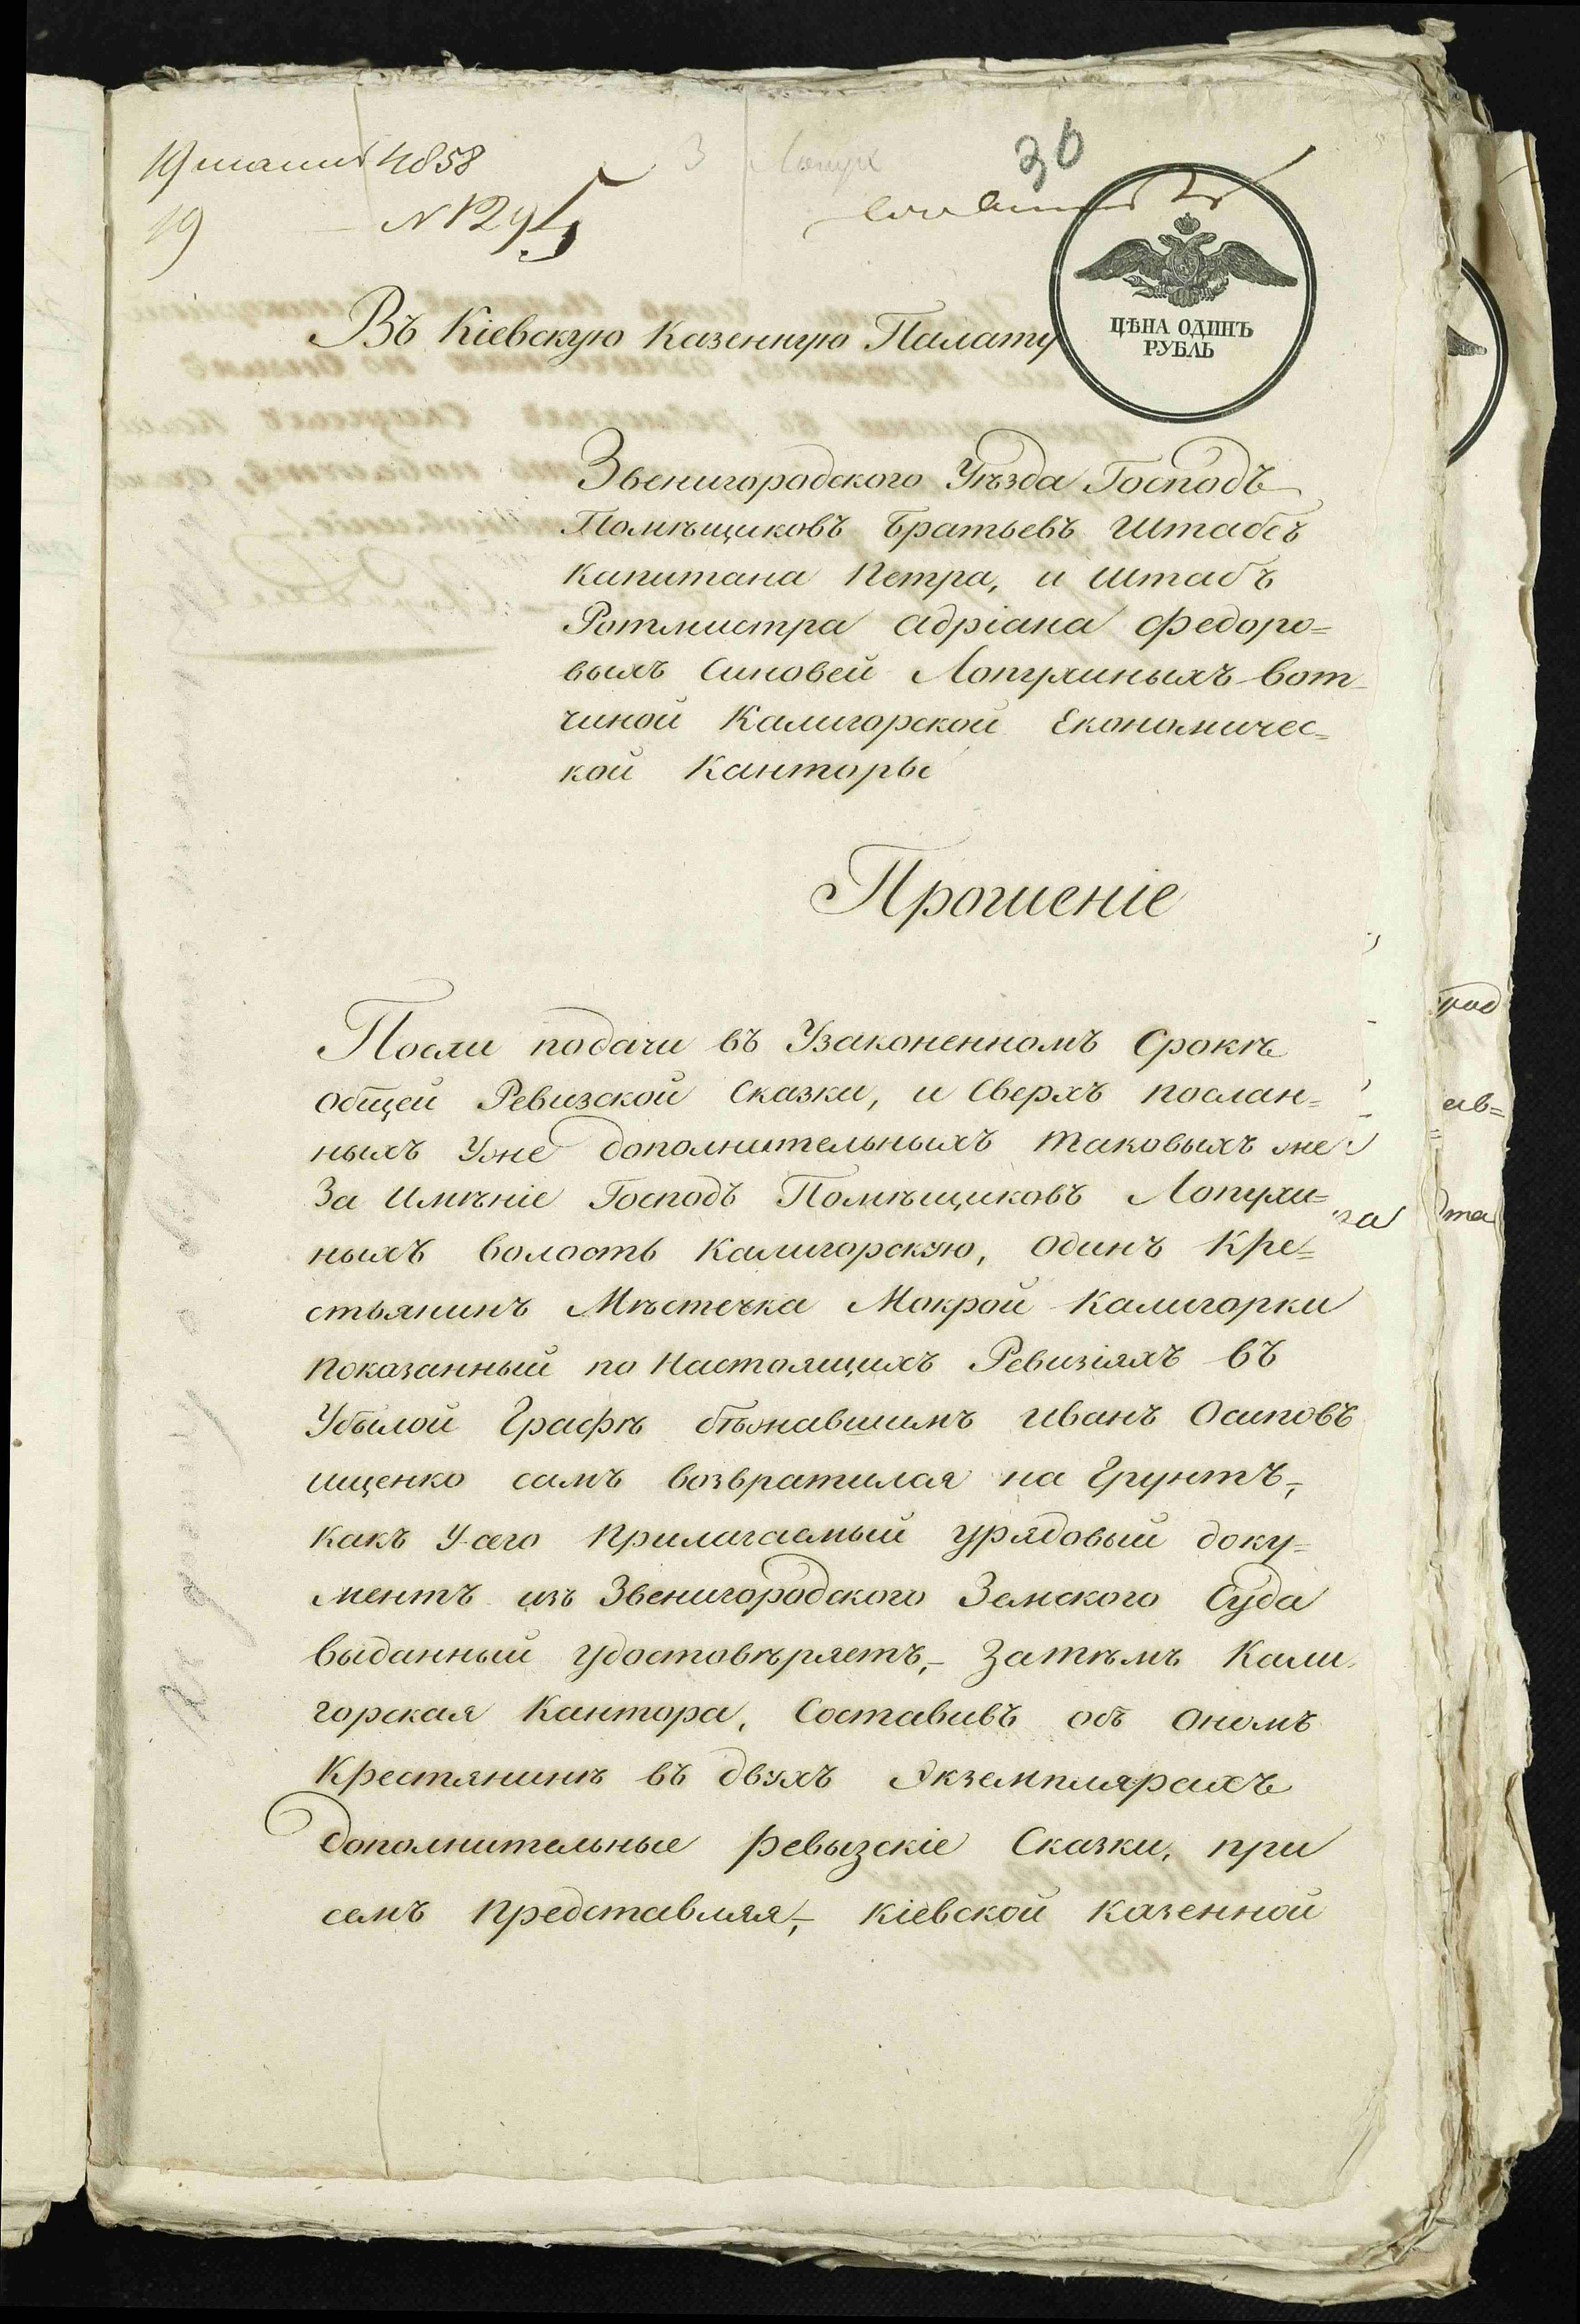 1858
19
30
№ 1295
ЦѢНА ОДИНЪ
РУБЛЬ
Въ Кіевскую Казенную Палату
Звенигородского Уѣзда Господъ
Помѣщиковъ Братьевъ Штабсъ
Капитана Петра, и Штабъ
Ротмистра Адріана Федоро=
выхъ Синовей Лопухиныхъ вот
чиной Калигорской Економичес=
кой Канторы
Прошеніе
Посли подачи въ Узаконенномъ Срокѣ
общей Ревизской Сказки, и Сверхъ послан=
ныхъ Уже дополнительныхъ таковыхъ же
За Имѣніе Господъ Помѣщиковъ Лопухи=
ныхъ волость Калигорскую, Одинъ Кре=
стьянинъ Мѣстечка Мокрой Калигорки
показанный по Настоящихъ Ревизіяхъ въ
Убылой Графѣ бѣжавшимъ Иванъ Осиповъ
ищенко самъ возвратился на Грунтъ,
какъ У-сего Прилагаемый урядовый доку=
ментъ изъ Звенигородского Земского Суда
выданный удостовѣряетъ,- Затѣмъ Кали
горская Кантора, Составивъ объ Ономъ
Крестянинѣ въ двухъ Экземплярахъ
Дополнительные ревызскіе Сказки, при
семъ Представляя, Кіевской Казенной